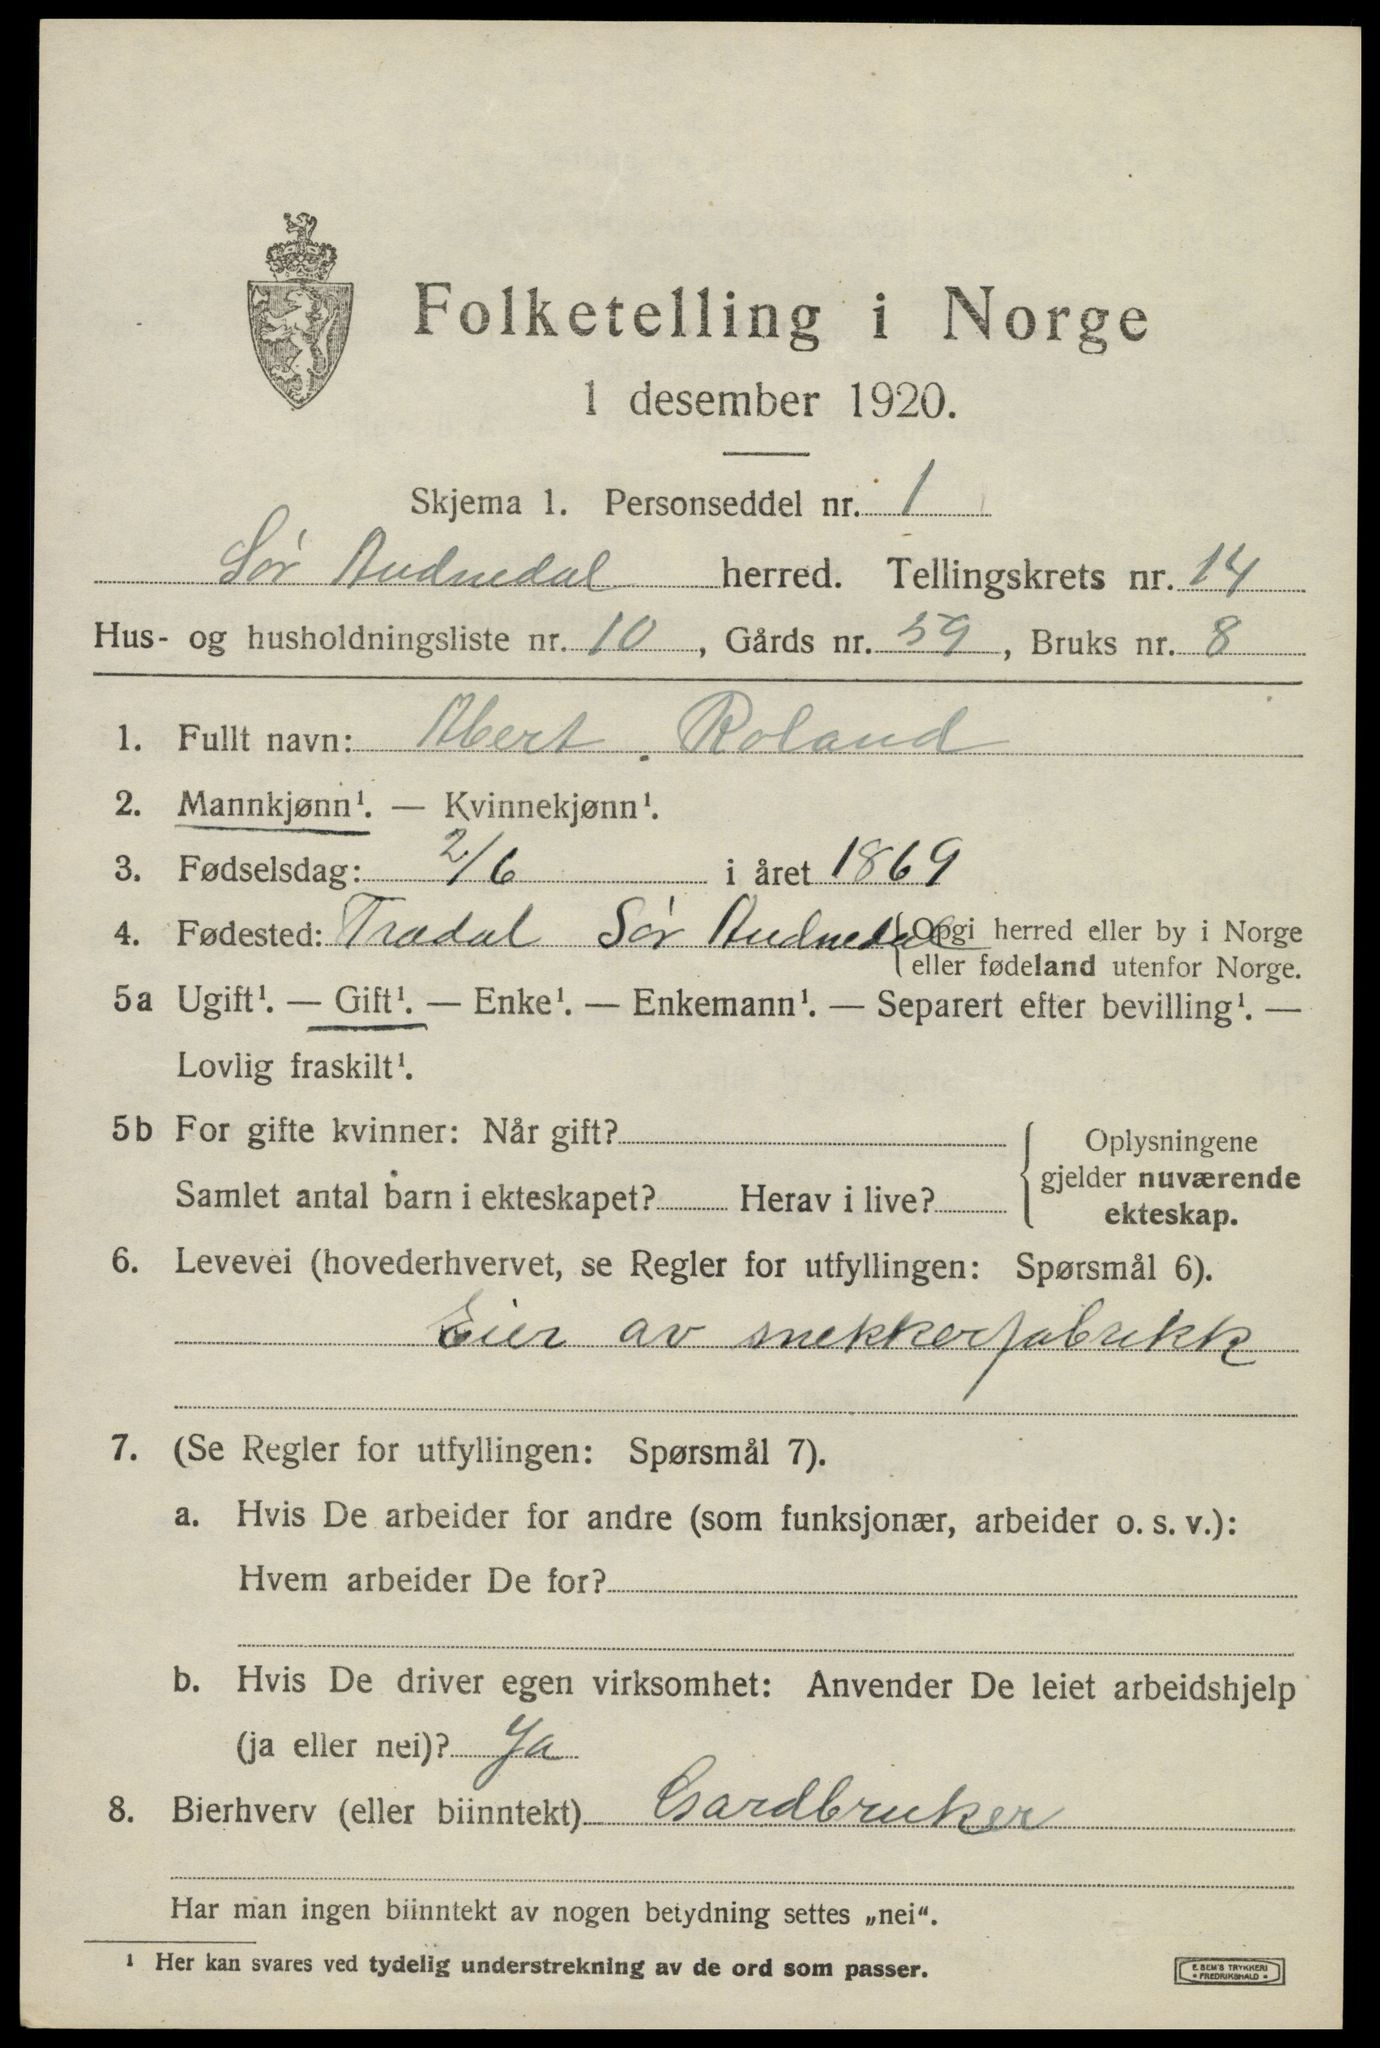 Folketelling i Norge
1 desember 1920.
Skjema 1. Personseddel nr. 1
Sør Audnedal herred. Tellingskrets nr. 14
Hus- og husholdningsliste nr. 10, Gårds nr. 59, Bruks nr. 8
1. Fullt navn: Abert Roland
2. Mannkjønn¹. — Kvinnekjønn¹.
3. Fødselsdag: 2/6 i året 1869
4. Fødested: Trædal Sør Audnedal { Opgi herred eller by i Norge
eller fødeland utenfor Norge.
5a Ugift¹. — Gift¹. — Enke¹. — Enkemann¹. — Separert efter bevilling¹. —
Lovlig fraskilt¹.
5b For gifte kvinner: Når gift?
Samlet antal barn i ekteskapet? Herav i live?
{ Oplysningene
gjelder nuværende
ekteskap.
6. Levevei (hovederhvervet, se Regler for utfyllingen: Spørsmål 6).
Eier av snekkerfabrikk
7. (Se Regler for utfyllingen: Spørsmål 7).
a. Hvis De arbeider for andre (som funksjonær, arbeider o. s. v.):
Hvem arbeider De for?
b. Hvis De driver egen virksomhet: Anvender De leiet arbeidshjelp
(ja eller nei)? Ja
8. Bierhverv (eller biinntekt) Gardbruker
Har man ingen biinntekt av nogen betydning settes „nei“.
¹ Her kan svares ved tydelig understrekning av de ord som passer.
E. SEM'S TRYKKERI
• FREDRIKSHALD •